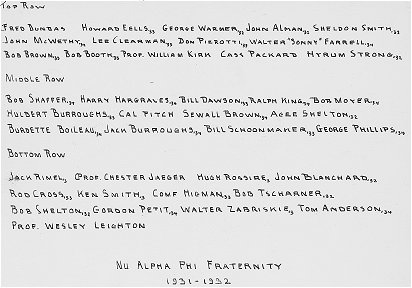 Top Row
Fred Dundas Howard Eells,33 George Warmer,33 John Alman,32 Sheldon Smith,33
John McWethy,34 Lee Clearman,33 Don Pierotti,33 Walter "Sonny" Farrell,34
Bob Brown,33 Bob Booth,33 Prof. William Kirk Cass Packard Hyrum Strong,32
Middle Row
Bob Shaffer,34 Harry Hargraves,34 Bill Dawson,33 Ralph King,34 Bob Moyer,34
Hulbert Burroughs,33 Cal Fitch Sewall Brown,33 Agee Shelton,32
Burdette Boileau,34 Jack Burroughs,34 Bill Schoonmaker,33 George Phillips,34
Bottom Row
Jack Rimel, Prof. Chester Jaeger Hugh Rossire, John Blanchard,32
Rod Cross,33 Ken Smith, Comf Higman, Bob Tscharner,32
Bob Shelton,33 Gordon Petit,34 Walter Zabriskie, Tom Anderson,34
Prof. Wesley Leighton
Nu Alpha Phi Fraternity
1931-1932